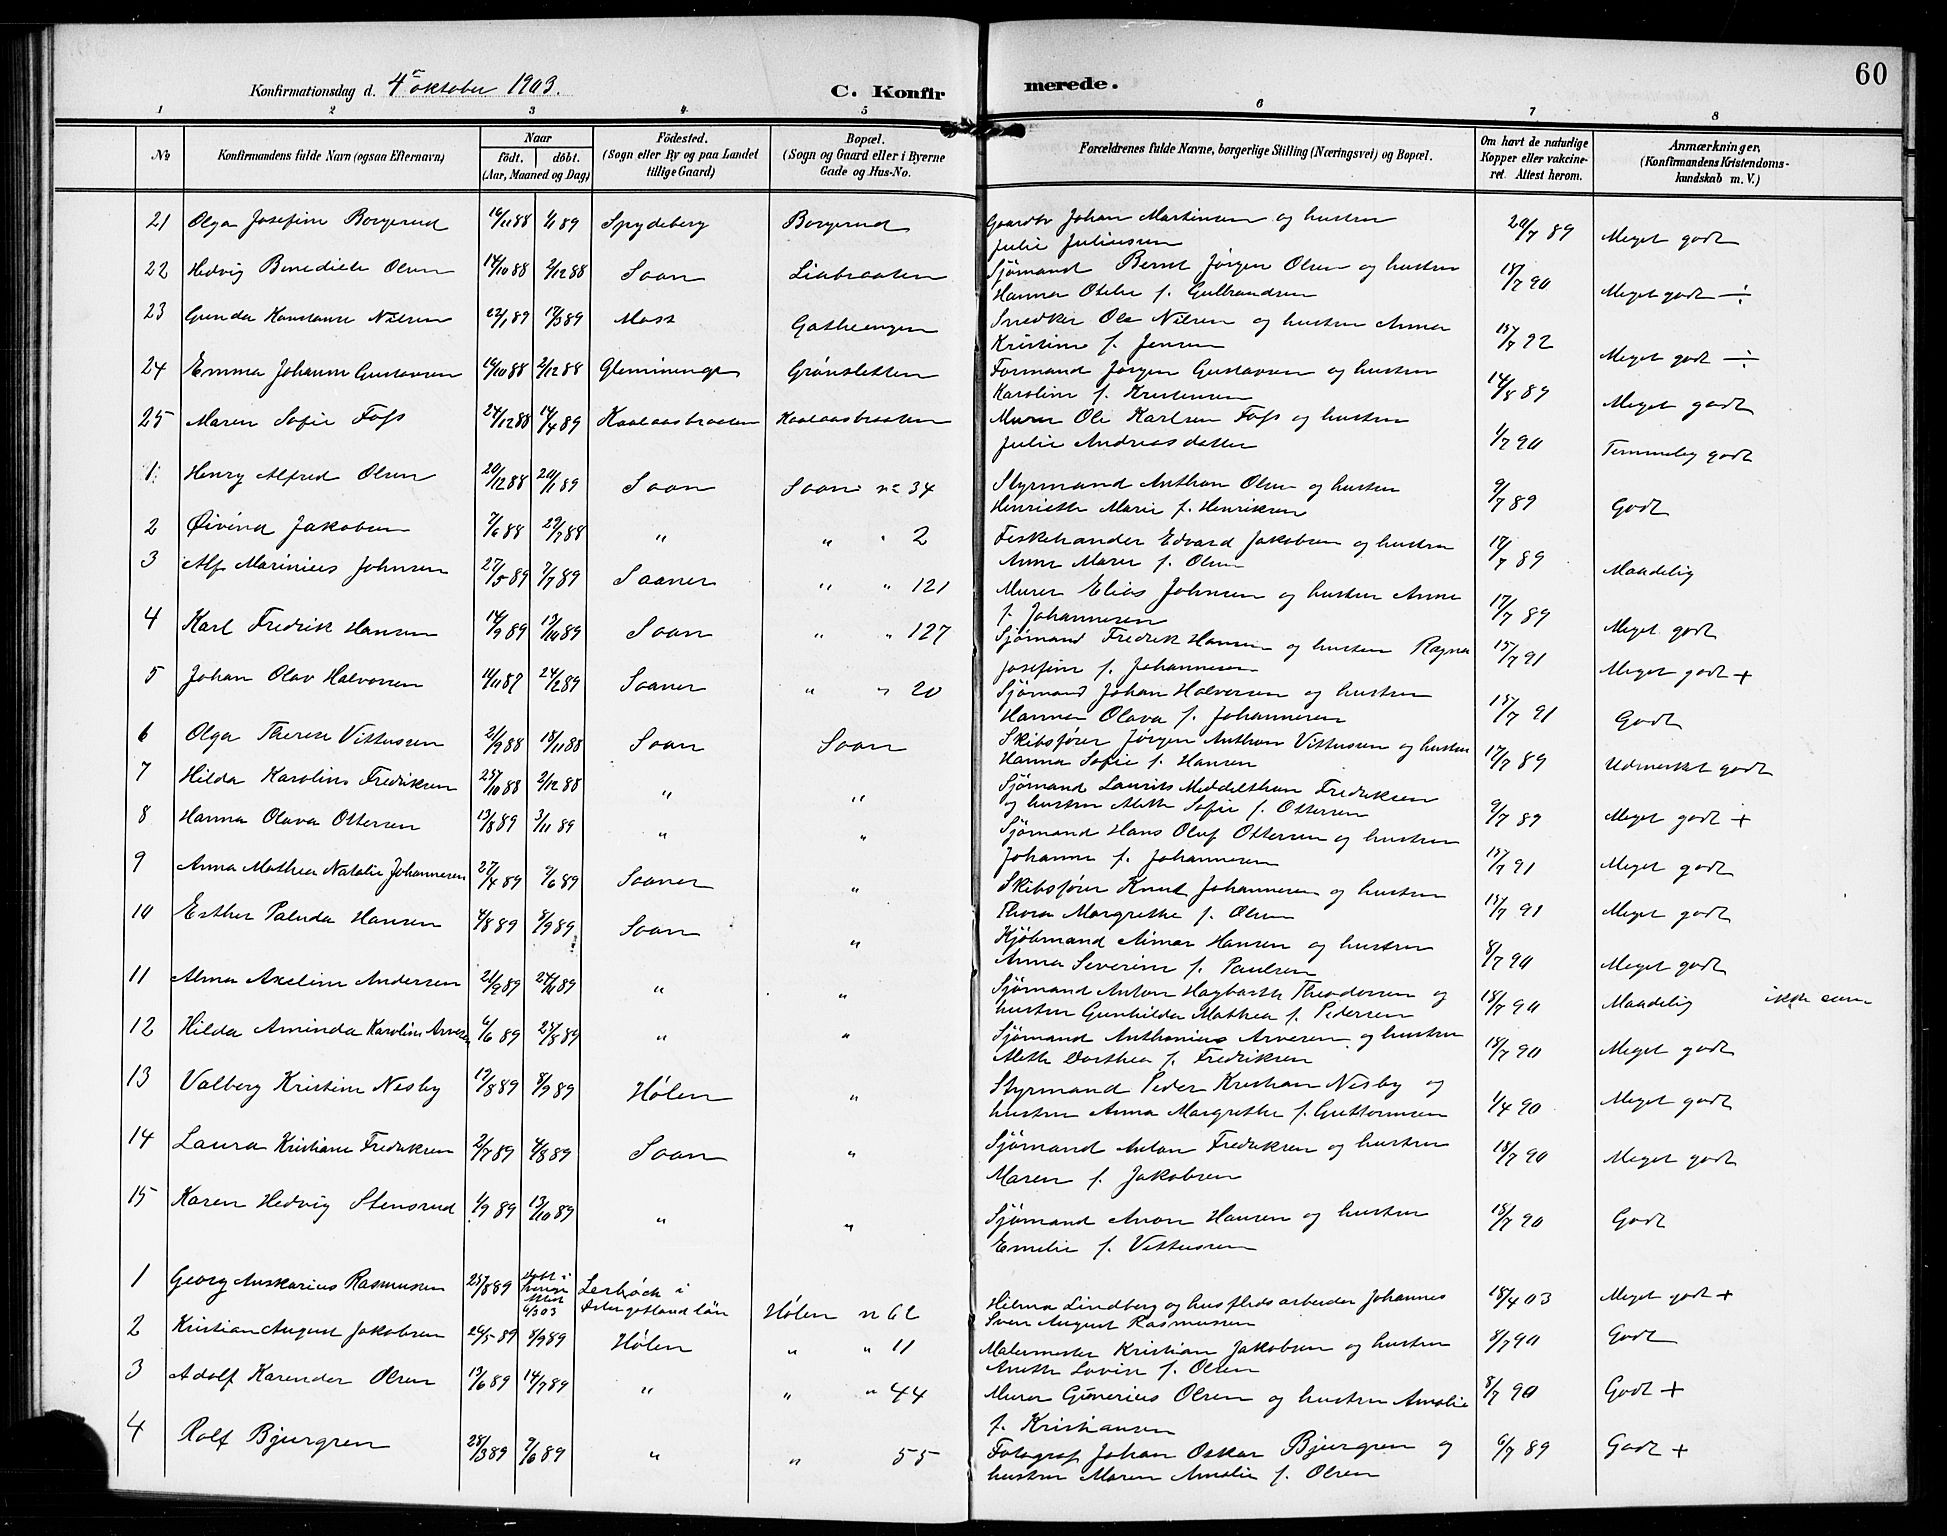 60
Konfirmationsdag d. 4de oktober 1903. C. Konfirmerede.
1 2 3 4 5 6 7 8
No
Konfirmandens fulde Navn (ogsaa Efternavn)
Naar
født. døbt.
(Aar, Maaned og Dag)
Födested.
(Sogn eller By og paa Landet tillige Gaard)
Bopæl.
(Sogn og Gaard eller i Byerne Gade og Hus-No.
Forældrenes fulde Navne, borgerlige Stilling (Næringsvei) og Bopæl.
Om havt de naturlige Kopper eller vakcineret. Attest herom.
Anmærkninger,
(Konfirmandens Kristendomskundskab m. V.)
21 Olga Josefine Borgerud 16/11 88 1/1 89 Spydeberg Borgerud Gaardbr Johan Martinsen og hustru Julie Juliussen 20/7 89 Meget godt
22 Hedvig Benedicte Olsen 14/10 88 2/12 88 Soon Liabraaten Sjømand Bernt Jørgen Olsen og hustru Hanna Otelie f. Gulbrandsen 18/7 90 Meget godt ÷
23 Gunda Konstanse Nilsen 22/1 89 17/3 89 Moss Snedker Ole Nilsen og hustru Anna Kristine f. Jensen 15/7 92 Meget godt ÷
24 Emma Johanne Gustavsen 16/10 88 2/12 88 Glemminge Grønsletten Formand Jørgen Gustavsen og hustru Karoline f. Kristensen 14/8 89 Meget godt
25 Maren Sofie Foss 24/12 88 14/4 89 Kaalaasbraaten Kaalaasbraaten Murer Ole Karlsen Foss og hustru Julie Andreasdatter 1/7 90 Temmelig godt
1 Henry Alfred Olsen 20/12 88 20/1 89 Soon Soon no 34 Styrmand Anthon Olsen og hustru Henriette Marie f. Henriksen 9/7 89 Godt
2 Øivind Jakobsen 7/6 88 29/7 88 " " " 2 Fiskehandler Edvard Jakobsen og hustru Anne Maren f. Olsen 17/7 89 Maadelig
3 Alf Marinius Johnsen 27/5 89 7/7 89 Saaner " " 121 Murer Elias Johnsen og hustru Anne f. Johannesen 17/7 89 Meget godt
4 Karl Fredrik Hansen 14/9 89 13/10 89 Soon " " 127 Sjømand Fredrik Hansen og hustru Ragna Josefine f. Johannesen 15/7 91 Meget godt +
5 Johan Olav Halvorsen 11/11 87 24/2 89 Saaner " " 20 Sjømand Johan Halvorsen og hustru Hanna Olava f. Johannesen 15/7 91 Godt
6 Olga Therese Vittussen 21/9 88 18/11 88 Soon Soon Skibsfører Jørgen Anthon Vittussen og hustru Hanna Sofie f. Hansen 17/7 89 Udmerket godt
7 Hilda Karoline Fredriksen 25/10 88 2/12 88 " " Sjømand Laurits Meddelthon Fredriksen og hustru Alette Sofie f. Ottersen 9/7 89 Meget godt +
8 Hanna Olava Ottersen 13/8 89 3/11 89 " " Sjømand Hans Oluf Ottersen og hustru Johanne f. Johannesen 15/7 91 Meget godt
9 Anna Mathea Natalie Johannesen 27/4 89 9/6 89 Saaner " Skibsfører Knut Johannesen og hustru Thora Margrethe f. Olsen 15/7 91 Meget godt
10 Esther Paluda Hansen 4/8 89 8/9 89 Soon " Kjøbmand Aimar Hansen og hustru Anna Severine f. Paulsen 8/7 90 Meget godt
11 Alma Axeline Andersen 21/9 89 24/11 89 " " Sjømand Anton Hagbarth Theodorsen og hustru Gunhilda Mathea f. Pedersen 18/7 90 Maadelig ikke
12 Hilda Aminda Karoline Arvesen 6/6 89 25/8 89 " " Sjømand Anthonius Arvesen og hustru Alette Dorthea f. Fredriksen 18/7 90 Meget godt
13 Valborg Kristine Nesby 12/8 89 8/9 89 Hølen " Styrmand Peder Kristian Nesby og hustru Anna Margrethe f. Guttormsen 1/4 90 Meget godt
14 Laura Kristiane Fredriksen 2/7 89 4/8 89 Soon " Sjømand Anton Fredriksen og hustru Maren f. Jakobsen 18/7 90 Meget godt
15 Karen Hedvig Stensrud 1/9 89 13/10 89 " " Sjømand Aron Hansen og hustru Emelie f. Vittussen 18/7 90 Godt
1 Georg Anskarius Rasmussen 25/8 89 døbt i 6/3 03 i Østergøtland län Hølen no 62 Hilma Lindberg og husflidsarbeider Johannes Sven August Rasmussen 18/4 03 Meget godt +
2 Kristian August Jakobsen 26/5 89 8/9 89 Hølen " " 11 Malermester Kristian Jakobsen og hustru Anette Lovise f. Olsen 8/7 90 Godt
3 Adolf Karender Olsen 13/6 89 14/7 89 " " " 44 Murer Gunerius Olsen og hustru Amalie f. Kristiansen 8/7 90 Godt +
4 Rolf Bjurgren 28/3 89 9/6 89 " " 55 Fotograf Johan Oskar Bjurgren og hustru Maren Amalie f. Olsen 6/7 89 Godt +